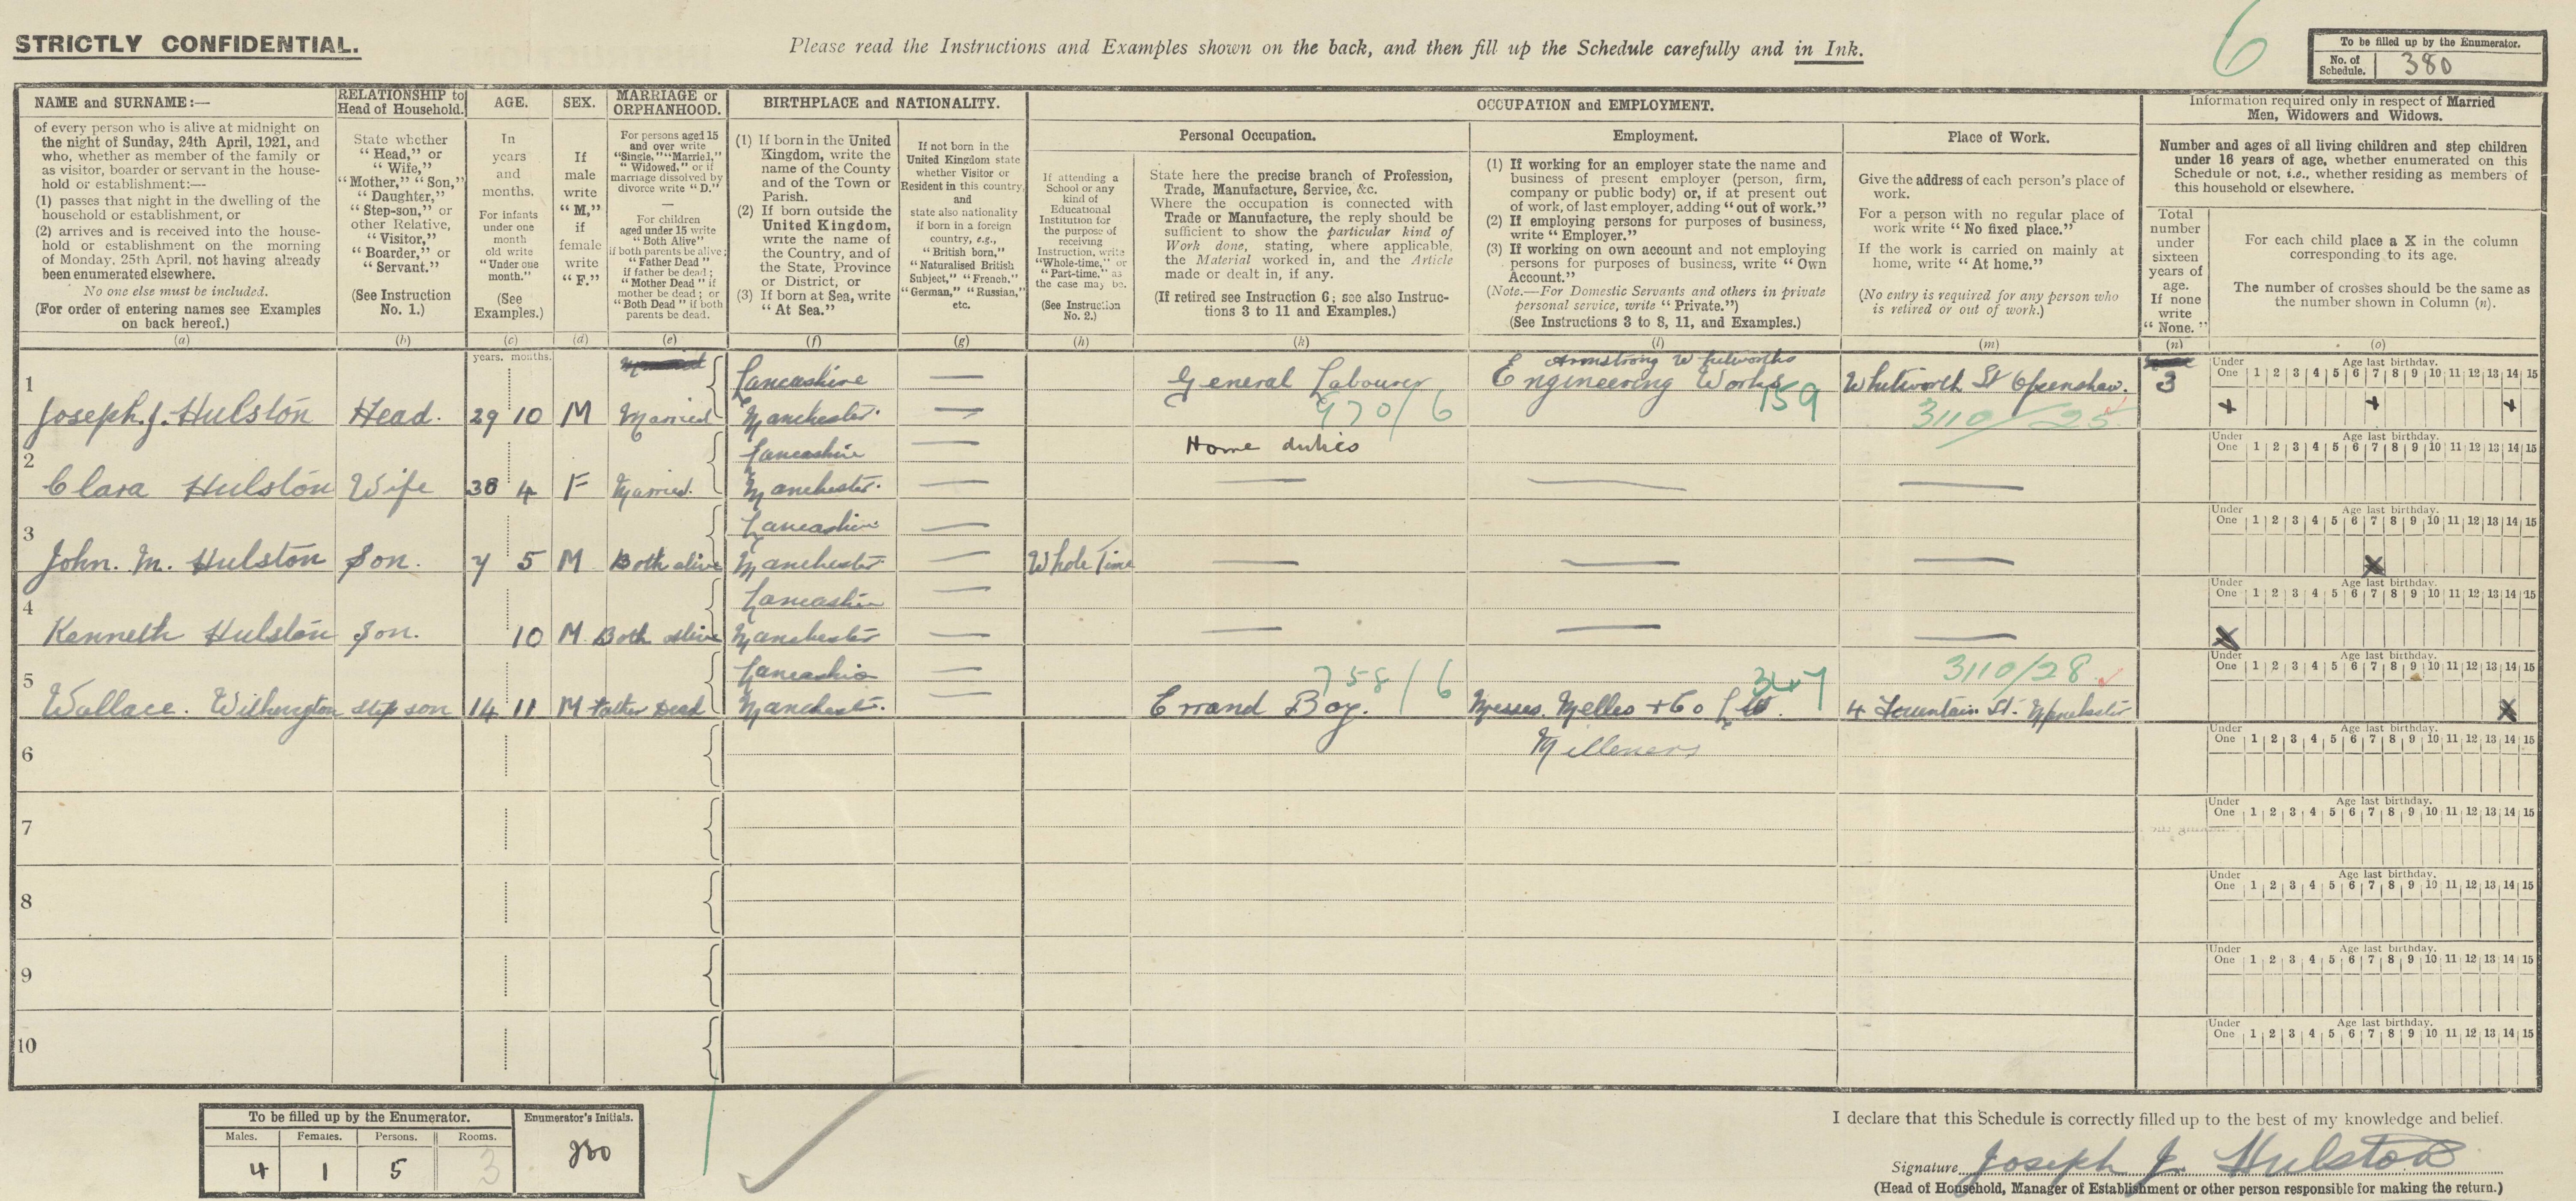 STRICTLY CONFIDENTIAL.
Please read the Instructions and Examples shown on the back, and then fill up the Schedule carefully and in Ink.
6
To be filled up by the Enumerator.
No. of Schedule. 380
NAME and SURNAME:—
of every person who is alive at midnight on
the night of Sunday, 24th April, 1921, and
who, whether as member of the family or
as visitor, boarder or servant in the house-
hold or establishment:—
(1) passes that night in the dwelling of the
household or establishment, or
(2) arrives and is received into the house-
hold or establishment on the morning
of Monday, 25th April, not having already
been enumerated elsewhere.
No one else must be included.
(For order of entering names see Examples
on back hereof.)
(a)
RELATIONSHIP to
Head of Household.
State whether
"Head," or
"Wife,"
"Mother," "Son,"
"Daughter,"
"Step-son," or
other Relative,
"Visitor,"
"Boarder," or
"Servant."
(See Instruction
No. 1.)
(b)
AGE.
In
years
and
months.
For infants
under one
month
old write
"Under one
month."
(See
Examples.)
(c)
SEX.
If
male
write
"M,"
if
female
write
"F."
(d)
MARRIAGE or
ORPHANHOOD.
For persons aged 15
and over write
"Single," "Married,"
"Widowed," or if
marriage dissolved by
divorce write "D."
—
For children
aged under 15 write
"Both Alive"
if both parents be alive;
"Father Dead"
if father be dead;
"Mother Dead" if
mother be dead; or
"Both Dead" if both
parents be dead.
(e)
BIRTHPLACE and NATIONALITY.
(1) If born in the United
Kingdom, write the
name of the County
and of the Town or
Parish.
(2) If born outside the
United Kingdom,
write the name of
the Country, and of
the State, Province
or District, or
(3) If born at Sea, write
"At Sea."
(f)
If not born in the
United Kingdom state
whether Visitor or
Resident in this country,
and
state also nationality
if born in a foreign
country, e.g.,
"British born,"
"Naturalised British
Subject," "French."
"German," "Russian,"
etc.
(g)
OCCUPATION and EMPLOYMENT.
If attending a
School or any
kind of
Educational
Institution for
the purpose of
receiving
Instruction, write
"Whole-time," or
"Part-time," as
the case may be.
(See Instruction
No. 2.)
(h)
Personal Occupation.
State here the precise branch of Profession,
Trade, Manufacture, Service, &c.
Where the occupation is connected with
Trade or Manufacture, the reply should be
sufficient to show the particular kind of
Work done, stating, where applicable,
the Material worked in, and the Article
made or dealt in, if any.
(If retired see Instruction 6; see also Instruc-
tions 3 to 11 and Examples.)
(k)
Employment.
(1) If working for an employer state the name and
business of present employer (person, firm,
company or public body) or, if at present out
of work, of last employer, adding "out of work."
(2) If employing persons for purposes of business,
write "Employer."
(3) If working on own account and not employing
persons for purposes of business, write "Own
Account."
(Note.—For Domestic Servants and others in private
personal service, write "Private.")
(See Instructions 3 to 8, 11, and Examples.)
(l)
Place of Work.
Give the address of each person's place of
work.
For a person with no regular place of
work write "No fixed place."
If the work is carried on mainly at
home, write "At home."
(No entry is required for any person who
is retired or out of work.)
(m)
Information required only in respect of Married
Men, Widowers and Widows.
Number and ages of all living children and step children
under 16 years of age, whether enumerated on this
Schedule or not, i.e., whether residing as members of
this household or elsewhere.
Total
number
under
sixteen
years of
age.
If none
write
"None."
(n)
For each child place a X in the column
corresponding to its age.
The number of crosses should be the same as
the number shown in Column (n).
(o)
years. months.
1
Joseph. J. Hulston Head. 29 10 M Married Lancashire — Manchester. — General Labourer 970/6 Armstrong Whitworths Engineering Works 159 Whitworth St Openshaw. 3110/25 3
Under One Age last birthday. 1 2 3 4 5 6 7 8 9 10 11 12 13 14 15
+ + +
2
Clara Hulston Wife 38 4 F Married. Lancashire — Manchester. — Home duties — — —
Under One Age last birthday. 1 2 3 4 5 6 7 8 9 10 11 12 13 14 15
3
John. M. Hulston Son. 7 5 M Both alive Lancashire — Manchester — Whole Time — — —
Under One Age last birthday. 1 2 3 4 5 6 7 8 9 10 11 12 13 14 15
X
4
Kenneth Hulston Son. 10 M. Both alive Lancashire — Manchester — — — —
Under One Age last birthday. 1 2 3 4 5 6 7 8 9 10 11 12 13 14 15
X
5
Wallace. step son 14 11 M Father Dead Lancashire — Manchester. — Errand Boy. 758/6 Messrs. Melles + Co Ltd. 347 Milleners 4 Fountain St. Manchester 3110/28
Under One Age last birthday. 1 2 3 4 5 6 7 8 9 10 11 12 13 14 15
X
6
Under One Age last birthday. 1 2 3 4 5 6 7 8 9 10 11 12 13 14 15
7
Under One Age last birthday. 1 2 3 4 5 6 7 8 9 10 11 12 13 14 15
8
Under One Age last birthday. 1 2 3 4 5 6 7 8 9 10 11 12 13 14 15
9
Under One Age last birthday. 1 2 3 4 5 6 7 8 9 10 11 12 13 14 15
10
Under One Age last birthday. 1 2 3 4 5 6 7 8 9 10 11 12 13 14 15
To be filled up by the Enumerator.
Males. Females. Persons. Rooms.
4 1 5 3
Enumerator's Initials.
I declare that this Schedule is correctly filled up to the best of my knowledge and belief.
Signature Joseph J. Hulston
(Head of Household, Manager of Establishment or other person responsible for making the return.)